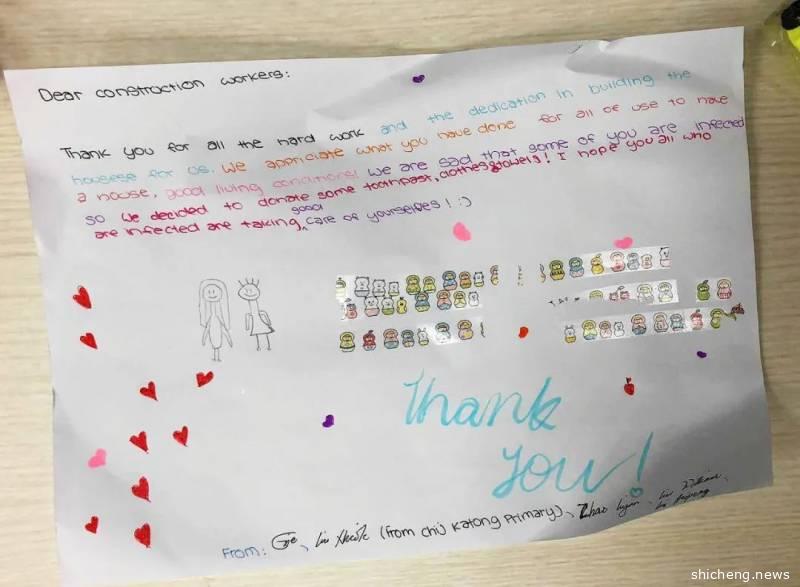 Dear construction workers:
Thank you for all the hard work and the dedication in building the
housese for us. We appriciate what you have done for all of use to have
a house, good living conditions! We are sad that some of you are infected
so we decided to donate some toothpast, clothes&towels! I hope you all who
are infected are taking good care of yourselves! :)
Thank
you!
From: (From CHIJ Katong Primary), Zhao
shicheng.news